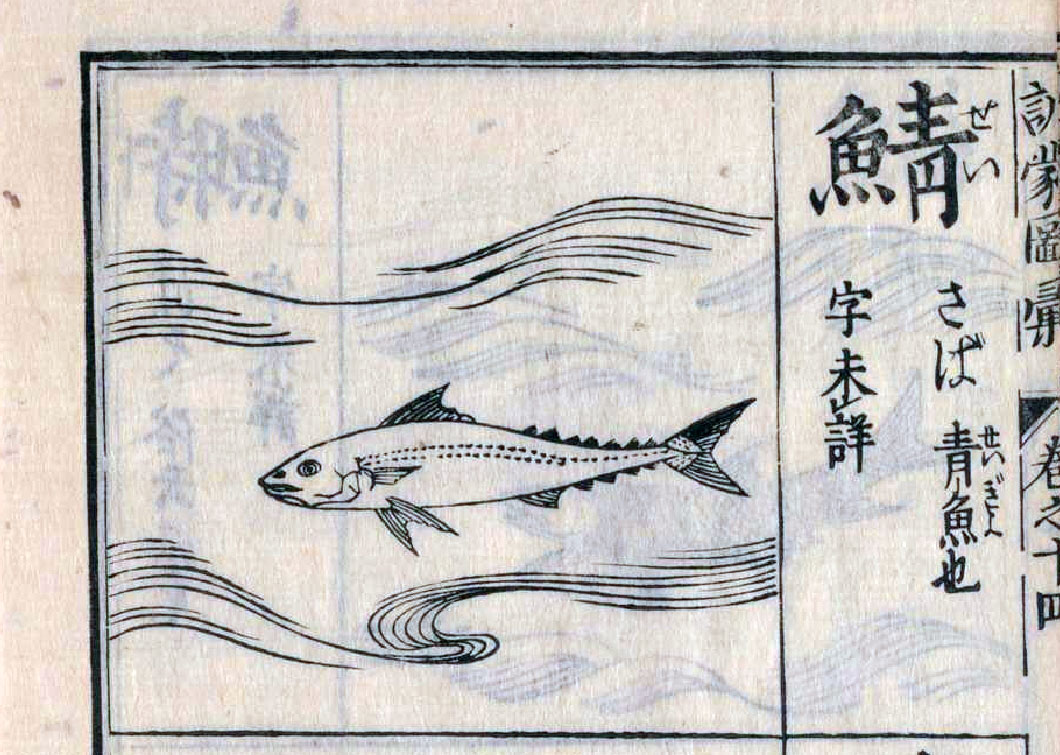 訓蒙圖彙
巻之十四
鯖
せい
さば 青魚也
せいぎよ
字未詳